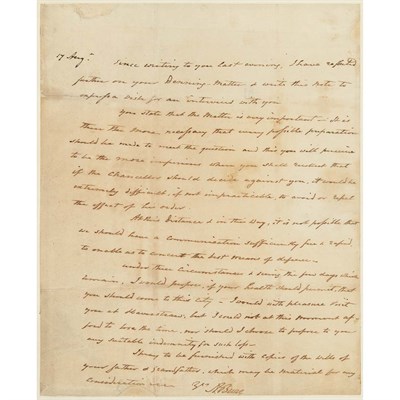 17 Aug.
Since writing to you last evening, I have reflected
further on your Downing-Matter & write this Note to
express a wish for an Interview with you
You state that the Matter is very important — It is
then the more necessary that every possible preparation
should be made to meet the question and this you will perceive
to be the more imperious when you shall reflect that
if the Chancellor should decide against you, it would be
extremely difficult, if not impracticable, to avoid or repel
the effect of his order.
At this Distance & in this Way, it is not possible that
we should have a communication sufficiently free & rapid,
to enable us to concert the best means of defence
Under these Circumstances & seeing the few days which
remain, I would propose, if your health should permit, that
you should come to this city — I would with pleasure visit
you at but I could not at this moment af-
ford to lose the time, nor should I choose to propose to you
any suitable indemnity for such loss —
I pray to be furnished with copies of the Wills of
your father & Grandfather, which may be material for any
Consideration
Yrs ABurr